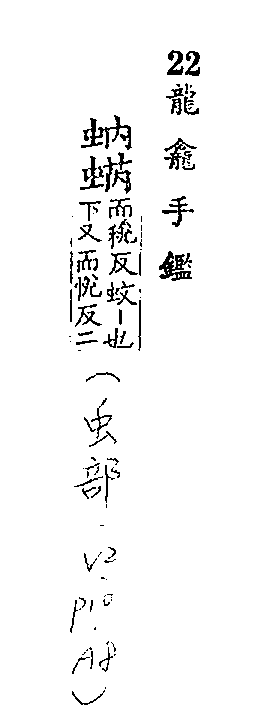 22 龍龕手鑑
蚋蜹
而稅反蚊丨也
下又而悅反二
(虫部.V2.P10.A8)